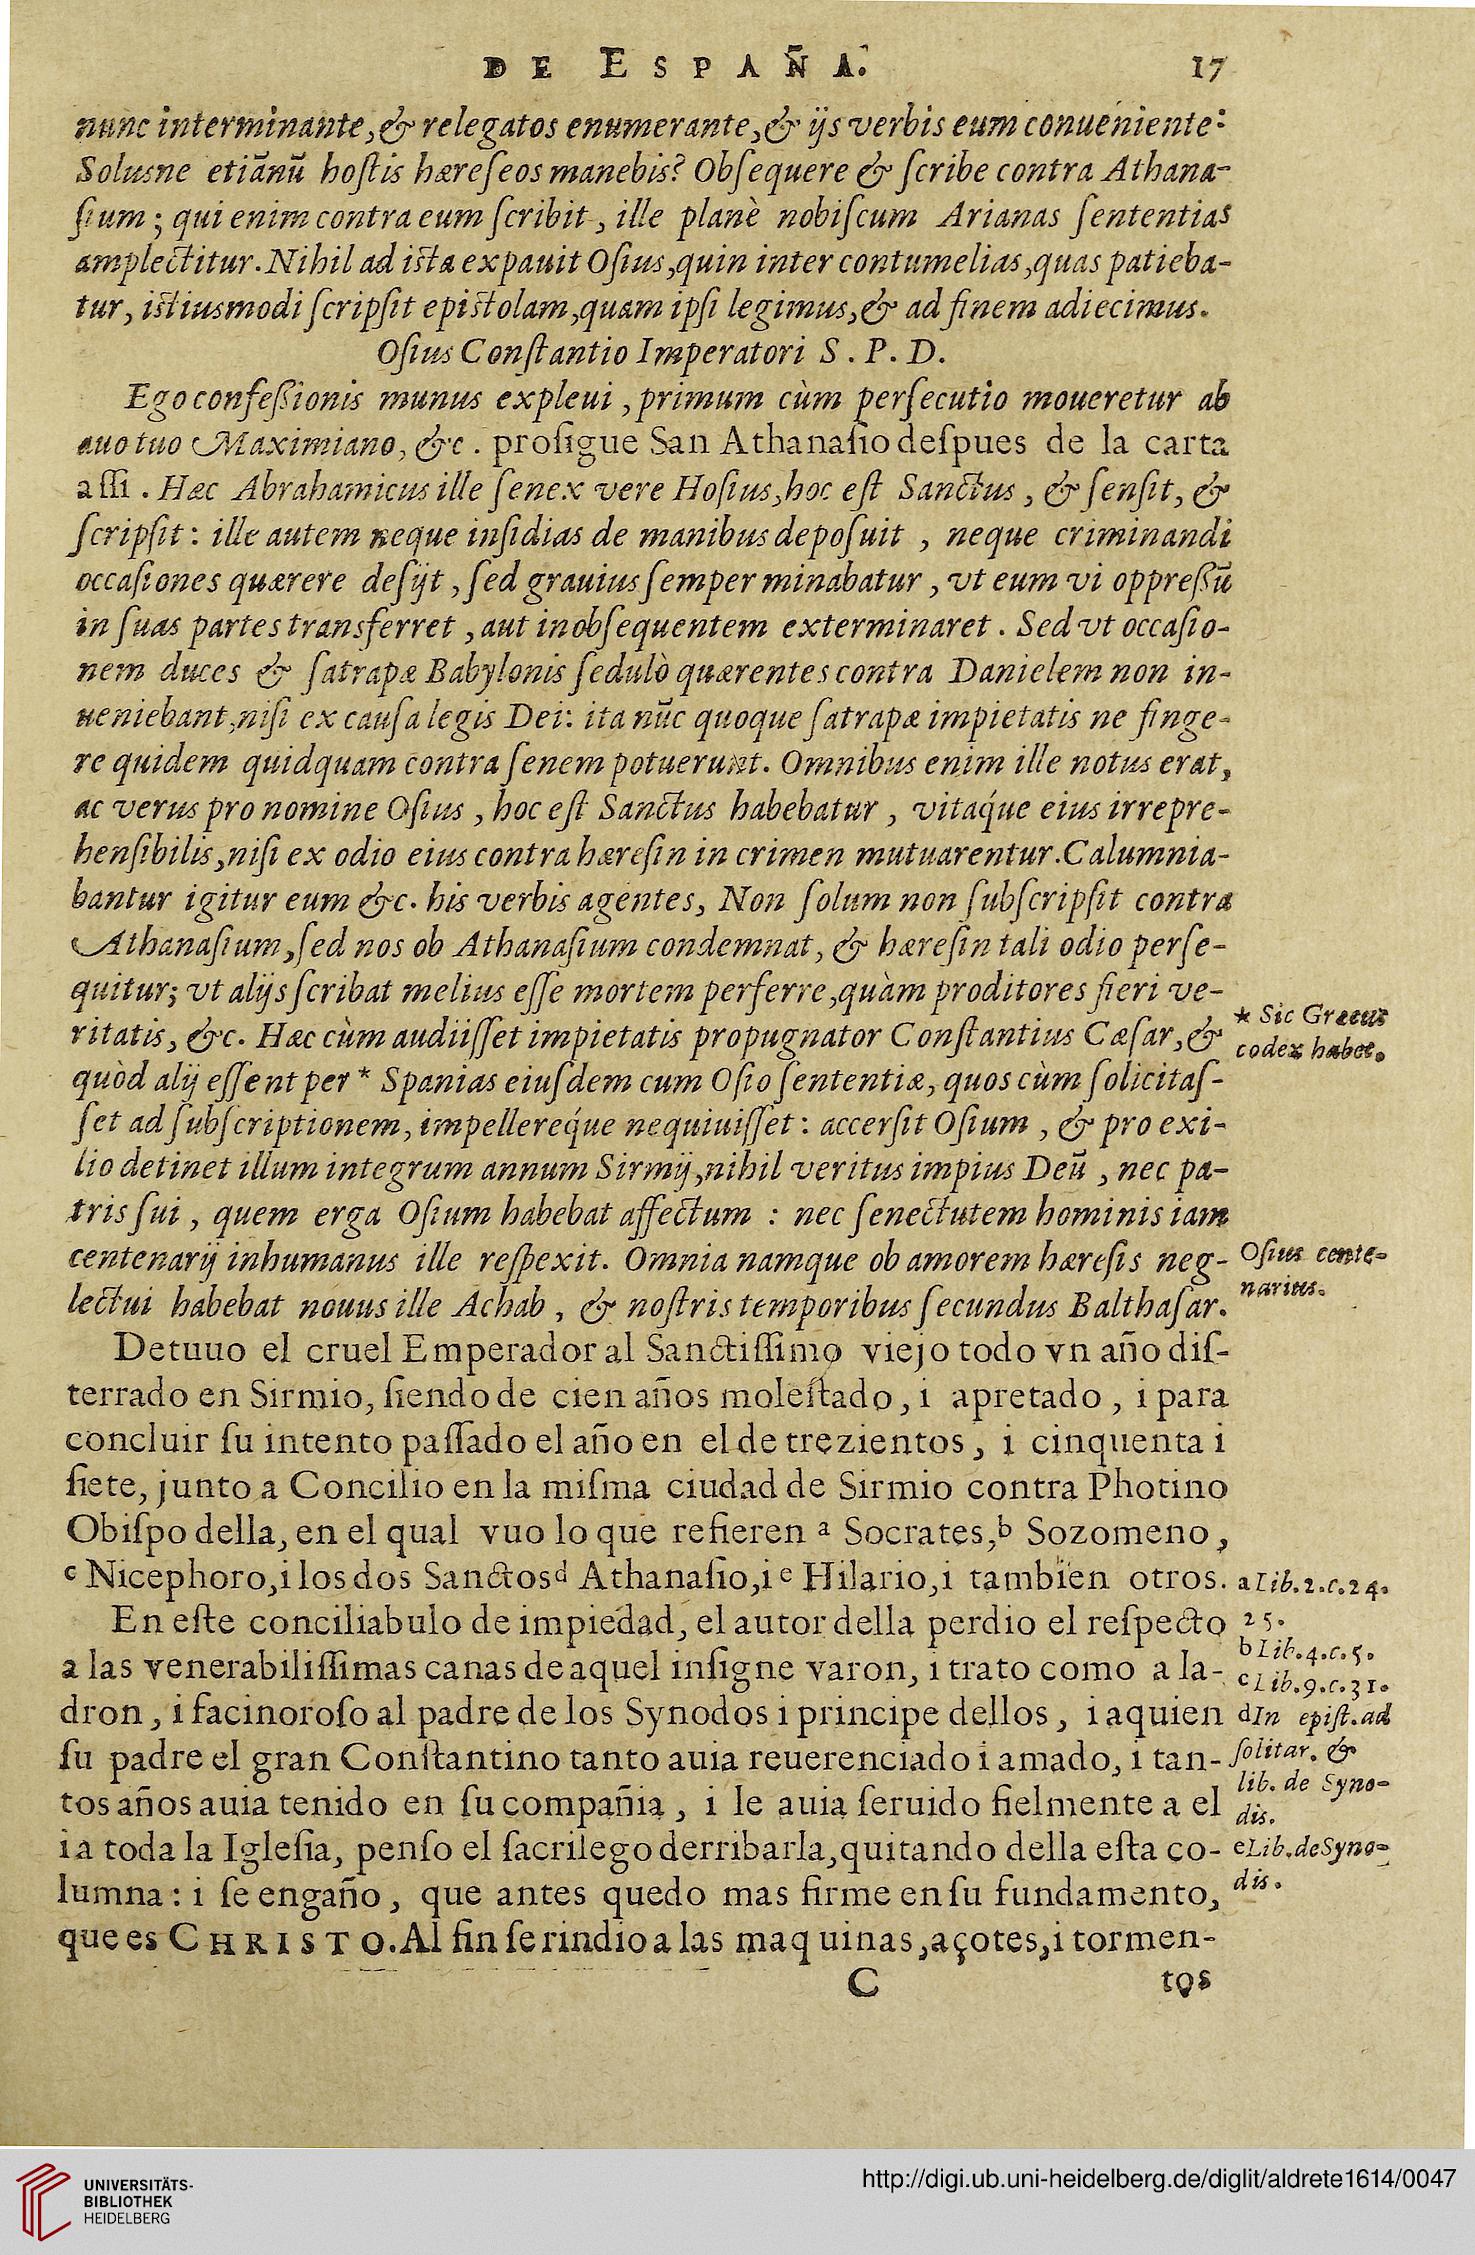 DE ESPAÑA. 17
nunc interminante,& relegatos enumerante,& ijs verbis eum conueniente:
Solusne etiānū hoſtis hæreſeos manebis? Obſequere & ſcribe contra Athana-
ſium; qui enim contra eum ſcribit, ille planè nobiſcum Arianas ſententias
amplectitur. Nihil ad iſta expauit Oſius,quin inter contumelias,quas patieba-
tur, iſtiusmodi ſcripſit epiſtolam,quam ipſi legimus,& ad finem adiecimus.
Oſius Conſtantio Imperatori S. P. D.
Ego confeßionis munus expleui, primum cùm perſecutio moueretur ab
auo tuo Maximiano, &c. proſigue San Athanaſio deſpues de la carta
aſſi. Hæc Abrahamicus ille ſenex vere Hoſius,hoc eſt Sanctus, & ſenſit, &
ſcripſit: ille autem neque inſidias de manibus depoſuit, neque criminandi
occaſiones quærere deſijt, ſed grauius ſemper minabatur, vt eum vi oppreßū
in ſuas partes transferret, aut inobſequentem exterminaret. Sed vt occaſio-
nem duces & ſatrapæ Babylonis ſedulò quærentes contra Danielem non in-
ueniebant,niſi ex cauſa legis Dei: ita nūc quoque ſatrapæ impietatis ne finge-
re quidem quidquam contra ſenem potuerunt. Omnibus enim ille notus erat,
ac verus pro nomine Oſius, hoc eſt Sanctus habebatur, vitaq́ue eius irrepre-
henſibilis,niſi ex odio eius contra hæreſin in crimen mutuarentur. Calumnia-
bantur igitur eum &c. his verbis agentes, Non ſolum non ſubſcripſit contra
Athanaſium,ſed nos ob Athanaſium condemnat, & hæreſin tali odio perſe-
quitur; vt alijs ſcribat melius eſſe mortem perferre,quàm proditores fieri ve-
ritatis, &c. Hæc cùm audiiſſet impietatis propugnator Conſtantius Cæſar,&
quòd alij eſſent per * Spanias eiuſdem cum Oſio ſententiæ, quos cùm ſolicitaſ-
ſet ad ſubſcriptionem, impellereq́ue nequiuiſſet: accerſit Oſium, & pro exi-
lio detinet illum integrum annum Sirmij,nihil veritus impius Deū, nec pa-
tris ſui, quem erga Oſium habebat affectum: nec ſenectutem hominis iam
centenarij inhumanus ille reſpexit. Omnia namque ob amorem hæreſis neg-
lectui habebat nouus ille Achab, & noſtris temporibus ſecundus Balthaſar.
Detuuo el cruel Emperador al Sanctiſſimo viejo todo vn año diſ-
terrado en Sirmio, ſiendo de cien años moleſtado, i apretado, i para
concluir ſu intento paſſado el año en el de trezientos, i cinquenta i
ſiete, junto a Concilio en la miſma ciudad de Sirmio contra Photino
Obiſpo della, en el qual vuo lo que refieren a Socrates, b Sozomeno,
c Nicephoro,i los dos Sanctos d Athanaſio,i e Hilario,i tambien otros.
En eſte conciliabulo de impiedad, el autor della perdio el reſpecto
a las venerabiliſſimas canas de aquel inſigne varon, i trato como a la-
dron, i facinoroſo al padre de los Synodos i principe dellos, i aquien
ſu padre el gran Conſtantino tanto auia reuerenciado i amado, i tan-
tos años auia tenido en ſu compañia, i le auia ſeruido fielmente a el
i a toda la Igleſia, penſo el ſacrilego derribarla,quitando della eſta co-
lumna: i ſe engaño, que antes quedo mas firme en ſu fundamento,
que es CHRISTO. Al fin ſe rindio a las maquinas,açotes,i tormen-
C tos
* Sic Græcus
codex habet.
Oſius cente-
narius.
a Lib.2.c.24.
25.
b Lib.4.c.5.
c Lib.9.c.31.
d In epiſt.ad
ſolitar. &
lib. de Syno-
dis.
e Lib.de Syno-
dis.
UNIVERSITÄTS-
BIBLIOTHEK
HEIDELBERG
http://digi.ub.uni-heidelberg.de/diglit/aldrete1614/0047